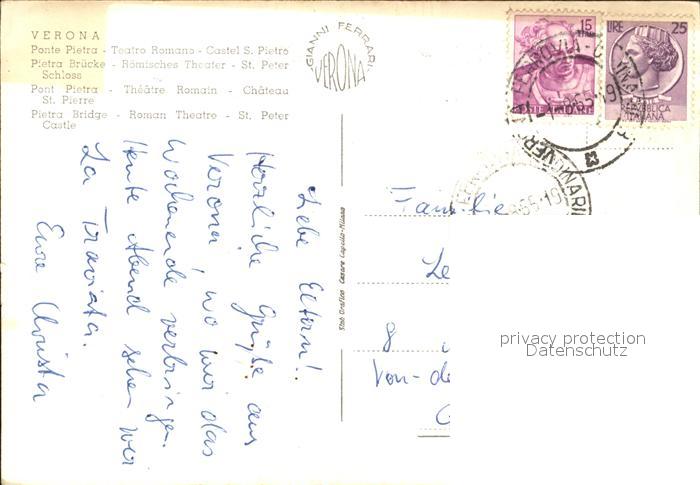 VERONA
Ponte Pietra - Teatro Romano - Castel S. Pietro
Pietra Brücke - Römisches Theater - St. Peter
Schloss
Pont Pietra - Théâtre Romain - Château
St. Pierre
Pietra Bridge - Roman Theatre - St. Peter
Castle
GIANNI FERRARI
VERONA
15
LIRE 25
POSTE ITALIANE
REPUBBLICA
ITALIANA
Liebe Eltern!
Herzliche Grüße aus
Verona, wo wir das
Wochenende verbringen.
Heute Abend sehen wir
La Traviata.
Eure Christa
Stab Grafico Cesare Capello-Milano
Familie
Le
8
Von-de
privacy protection
Datenschutz